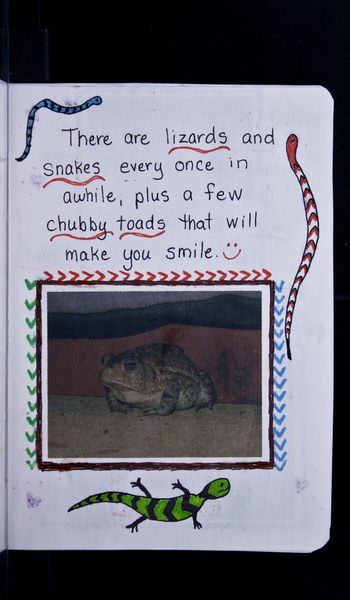 There are lizards and
snakes every once in
awhile, plus a few
chubby toads that will
make you smile.